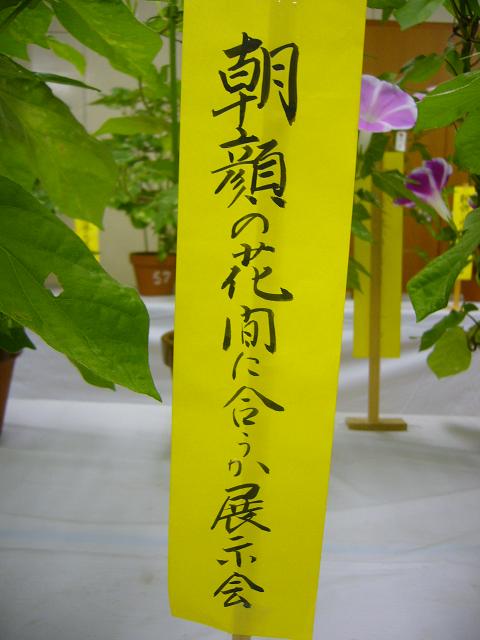 朝顔の花間に合うか展示会
57